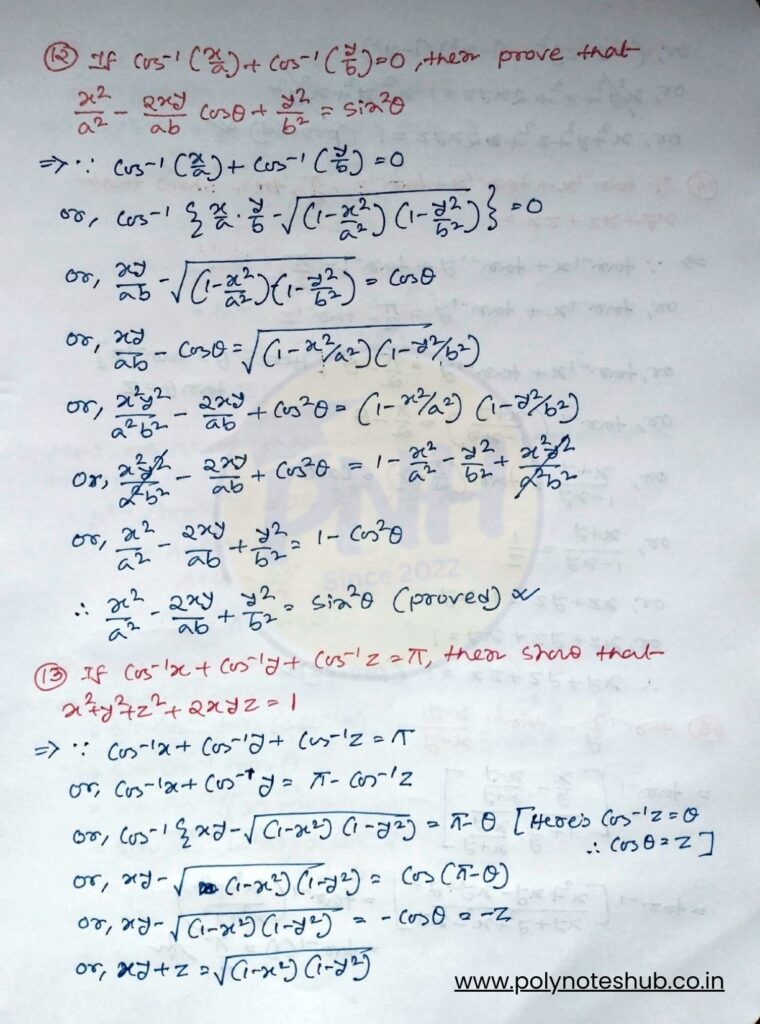 (12) If cos⁻¹(x/a) + cos⁻¹(y/b) = 0, then prove that
x²/a² - 2xy/ab cosθ + y²/b² = sin²θ
⇒ ∵ cos⁻¹(x/a) + cos⁻¹(y/b) = 0
or, cos⁻¹{x/a · y/b - √((1-x²/a²)(1-y²/b²))} = 0
or, xy/ab - √((1-x²/a²)(1-y²/b²)) = cosθ
or, xy/ab - cosθ = √((1-x²/a²)(1-y²/b²))
or, x²y²/a²b² - 2xy/ab + cos²θ = (1-x²/a²) (1-y²/b²)
or, x²y²/a²b² - 2xy/ab + cos²θ = 1 - x²/a² - y²/b² + x²y²/a²b²
or, x²/a² - 2xy/ab + y²/b² = 1 - cos²θ
∴ x²/a² - 2xy/ab + y²/b² = sin²θ (proved)
PNH
Since 2022
(13) If cos⁻¹x + cos⁻¹y + cos⁻¹z = π, then show that
x²+y²+z²+2xyz = 1
⇒ ∵ cos⁻¹x + cos⁻¹y + cos⁻¹z = π
or, cos⁻¹x + cos⁻¹y = π - cos⁻¹z
or, cos⁻¹{xy - √((1-x²)(1-y²)) = π - θ [Here, cos⁻¹z = θ
∴ cosθ = z]
or, xy - √((1-x²)(1-y²)) = cos(π-θ)
or, xy - √((1-x²)(1-y²)) = -cosθ = -z
or, xy + z = √((1-x²)(1-y²))
www.polynoteshub.co.in